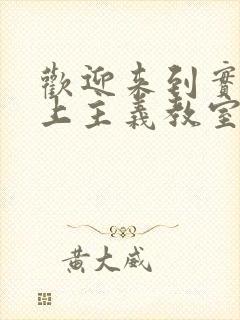 歡迎來到實
上主義教室
黃大威